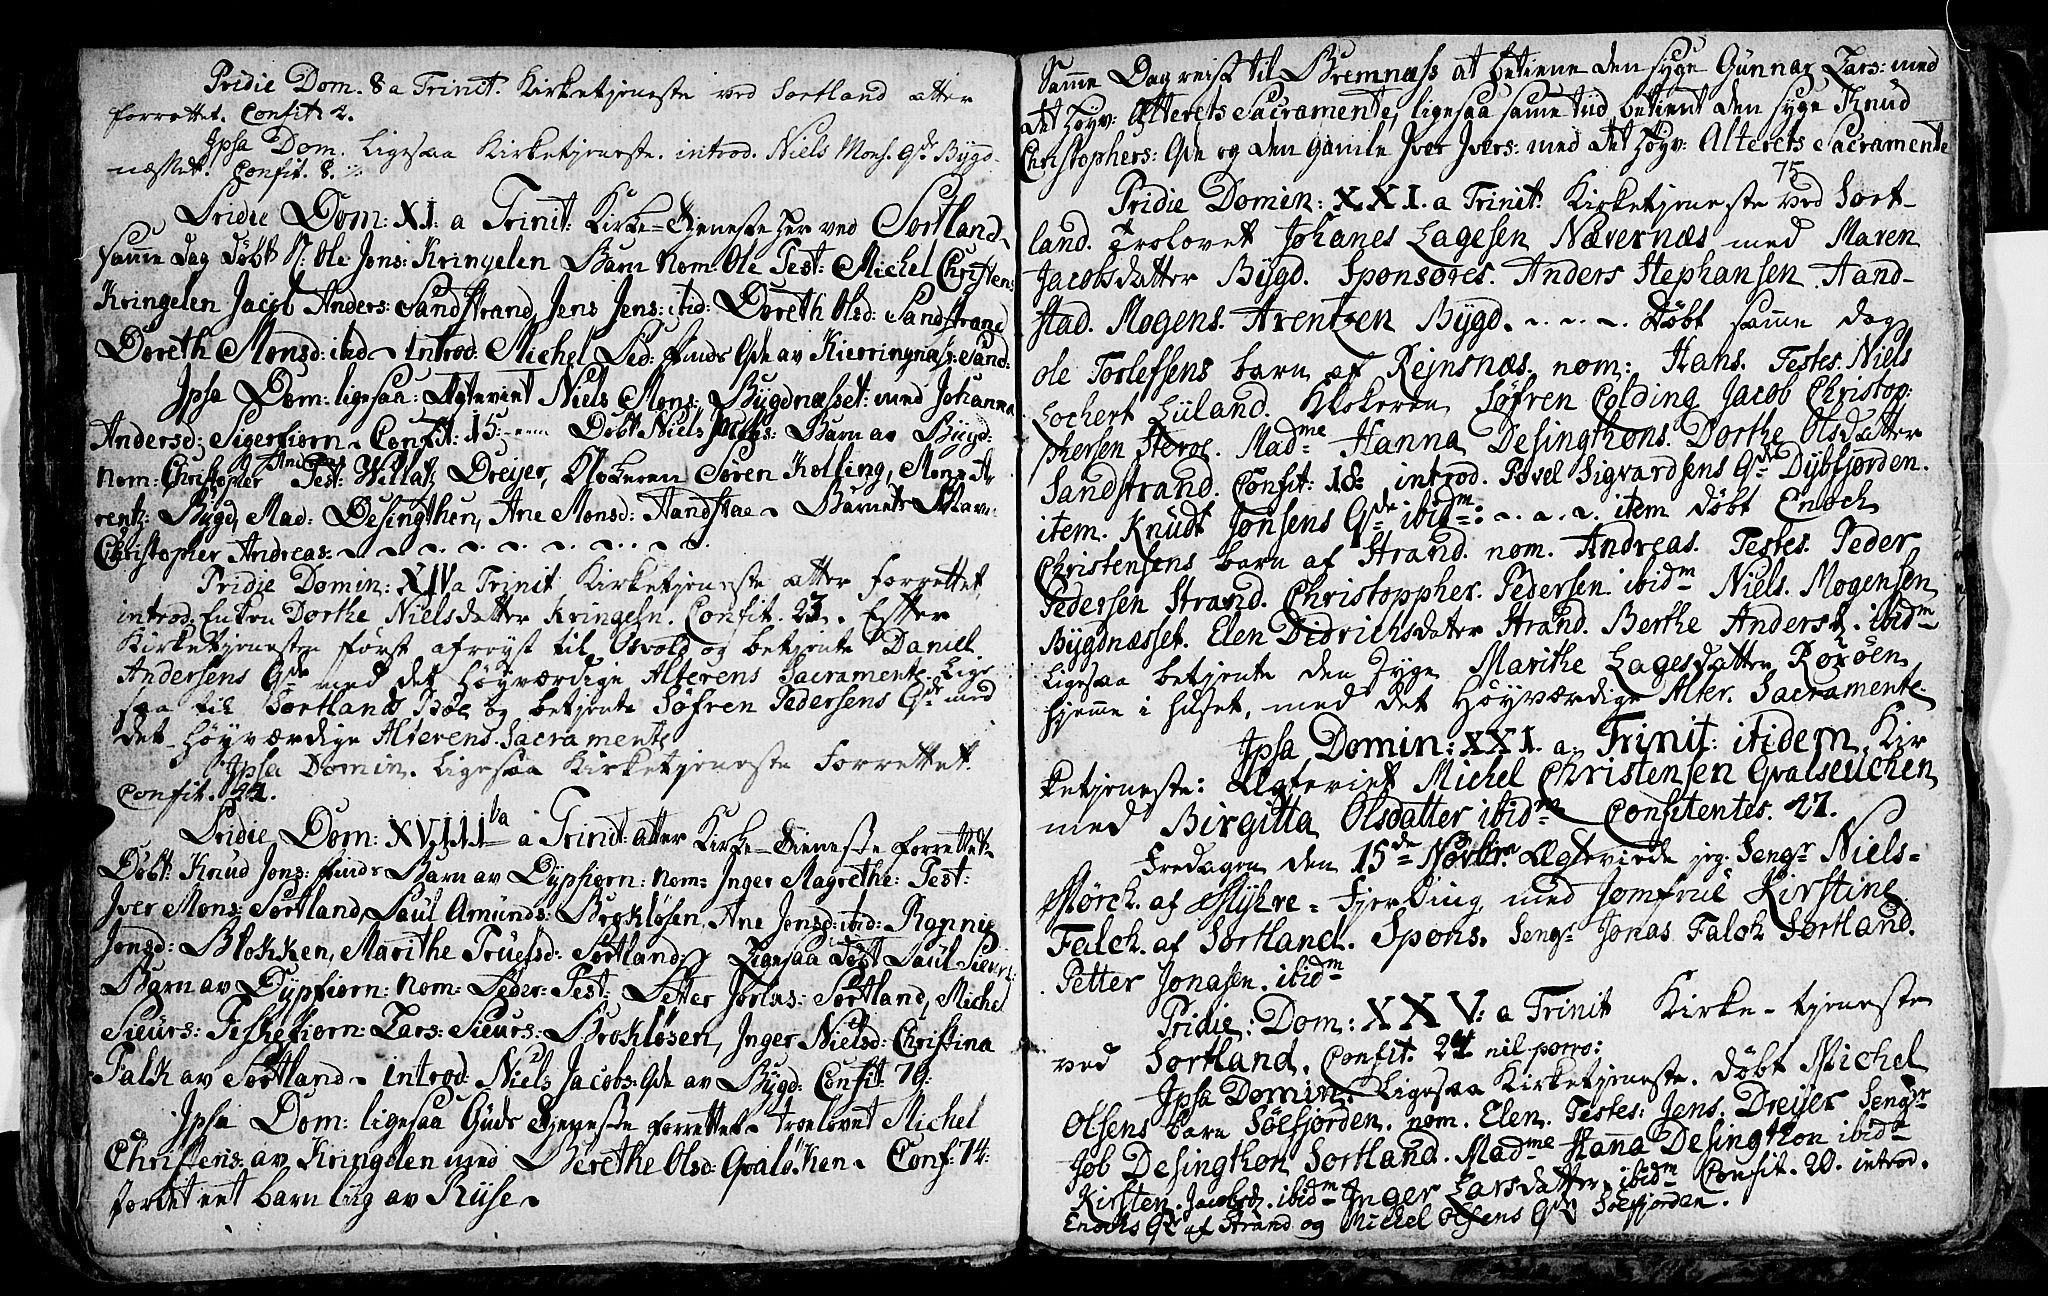 Pridie Dom. 8 a Trinit. Kirketjeneste ved Sortland atter
forrettet. Confit: 2.
Ipsa Dom. Ligesaa Kirketjeneste. introd. Niels Mons. Qde Bygd-
næsset. Confit. 8.
Pridie Dom: XI. a Trinit: Kirke-Tjeneste her ved Sortland,
Samme Dag døbt Ole Jons: Kringelen Barn Nom: Ole Test: Michel Christens:
Kringelen Jacob Anders: Sandstrand, Jens Jens: ibid: Doreth Olsd: Sandstrand
Doreth Monsd: ibid. Introd: Michel Ped: Finds Qde av Kierringnæs: Sand:
Ipsa Dom: ligesaa: Ægteviet Niels Mons: Bygdnæsset: med Johanna
Andersd: Sigerfiorn. Confit: 15: Døbt Niels Jacobs: Barn av Bygd:
Nom: Christopher Andreas Test: Willatz Dreijer, Klokeren Søren Kolling, Mons A-
rentz: Bygd, Mad: Desingthon, Ane Monsd: Aandstae. Barnets Navn
Christopher Andreas.
Pridie Domin: XIV a Trinit Kirketjeneste atter forrettet,
introd: Enken Dorthe Nielsdatter Kringeln. Confit. 23. Efter
Kirketjenesten først afreyst til Osvold og betjente Daniel
Andersens Qde med det Høyværdige Alterens Sacramente. Lige
saa til Sortlands Bøe og betjente Søfren Pedersens Qde med
det Høyværdige Alterens Sacramente
Ipsa Domin. Ligesaa Kirketjeneste Forrettet.
Confit. 21.
Pridie Dom: XVIII a Trinit: atter Kirke-Tieneste forrettet.
Døbt Knud Jons: Finds Barn av Dypfiorn: nom: Inger Magrethe: Test:
Iver Mons: Sortland, Paul Amunds: Brokløsen, Ane Jonsd: ibid: Rannei
Jonsd: Blokken, Marithe Truelsd: Sortland, Ligesaa Døbt Paul Sieurs:
Barn av Dypfiorn: Nom: Peder: Test: Petter Jonas: Sortland, Michel
Sieurs: Fiskefiorn: Lars: Sieurs: Brokløsen, Inger Nielsd: Christina
Falk av Sortland. introd: Niels Jacobs: Qde av Bygd: Confit: 19:
Ipsa Dom: ligesaa Guds Tjeneste forrettet. troelovet Michel
Christens: av Kringelen med Berethe Olsd: Qvaløsken. Conf: 74:
Jordet eet barn liig av Riise.
Samme Dag reist til Bremnæss at betiene den syge Gunnar Lars: med
det Høyv: Alterets Sacramente, ligesaa samme tiid betient den syge Knud
Christophers: Qde og den Gamle Iver Ivers: med det Høyv: Alterets Sacramente
75
Pridie Domin: XXI. a Trinit. Kirketjeneste ved Sort-
land. Trolovet Johanes Lagesen Nævernæs med Maren
Jacobsdatter Bygd. Sponsores. Anders Stephansen Aand-
stad. Mogens. Arentzen Bygd. Døbt samme dag
Ole Torlefsens barn af Rejnsnæs. nom: Hans. Testes. Niels
Lochert Lyland. Klokeren Søfren Colding Jacob Christop:
phersen Steroe. Madme Hanna Desingthons. Dorthe Olsdatter
Sandstrand. Confit: 18: introd. Povel Sigvardsens Qde Dybfjorden.
item. Knudt Jonsens Qde ibidm: item døbt Enoch
Christensens barn af Strand. nom. Andreas. Testes. Peder
Pedersen Strand. Christoppher. Pedersen. ibidm Niels. Mogensen
Bygdnæsset. Elen Didrichsdatter Strand. Berthe Andersd. ibidm
Ligesaa betjente den syge Marithe Lagesdatter Rørøen,
hjemme i huset, med det Høyværdige Alter. Sacramente.
Ipsa Domin: XXI. a. Trinit: itidem. Kir
ketjeneste: Ægteviet Michel Christensen Qvalseuchen
med Birgitta Olsdatter ibidm Confitentes. 27.
Fredagen den 15de Novbr. Ægteviede jeg. Sengr Niels-
Mørch. af Mykre-Fjerding med Jomfrue Kirstine
Falch. af Sortland. Spons. Sengr Jonas Falch Sortland.
Petter Jonasen. ibidm
Pridie: Dom: XXV: a Trinit Kirke-tjeneste
ved Sortland. Confit. 24 nil porro:
Ipsa Domin: Ligesaa Kirketjeneste. døbt Michel
Olsens barn Søefjorden. nom. Elen. Testes: Jens. Dreyer Sengr
Job Desingthon Sortland. Madme Hanna Desingthon ibidm
Kirsten. Jacobsd. ibidm Inger Larsdatter. ibidm Confit. 20. introd.
Enochs Qde af Strand og Michel Olsens Qde Søefjorden.